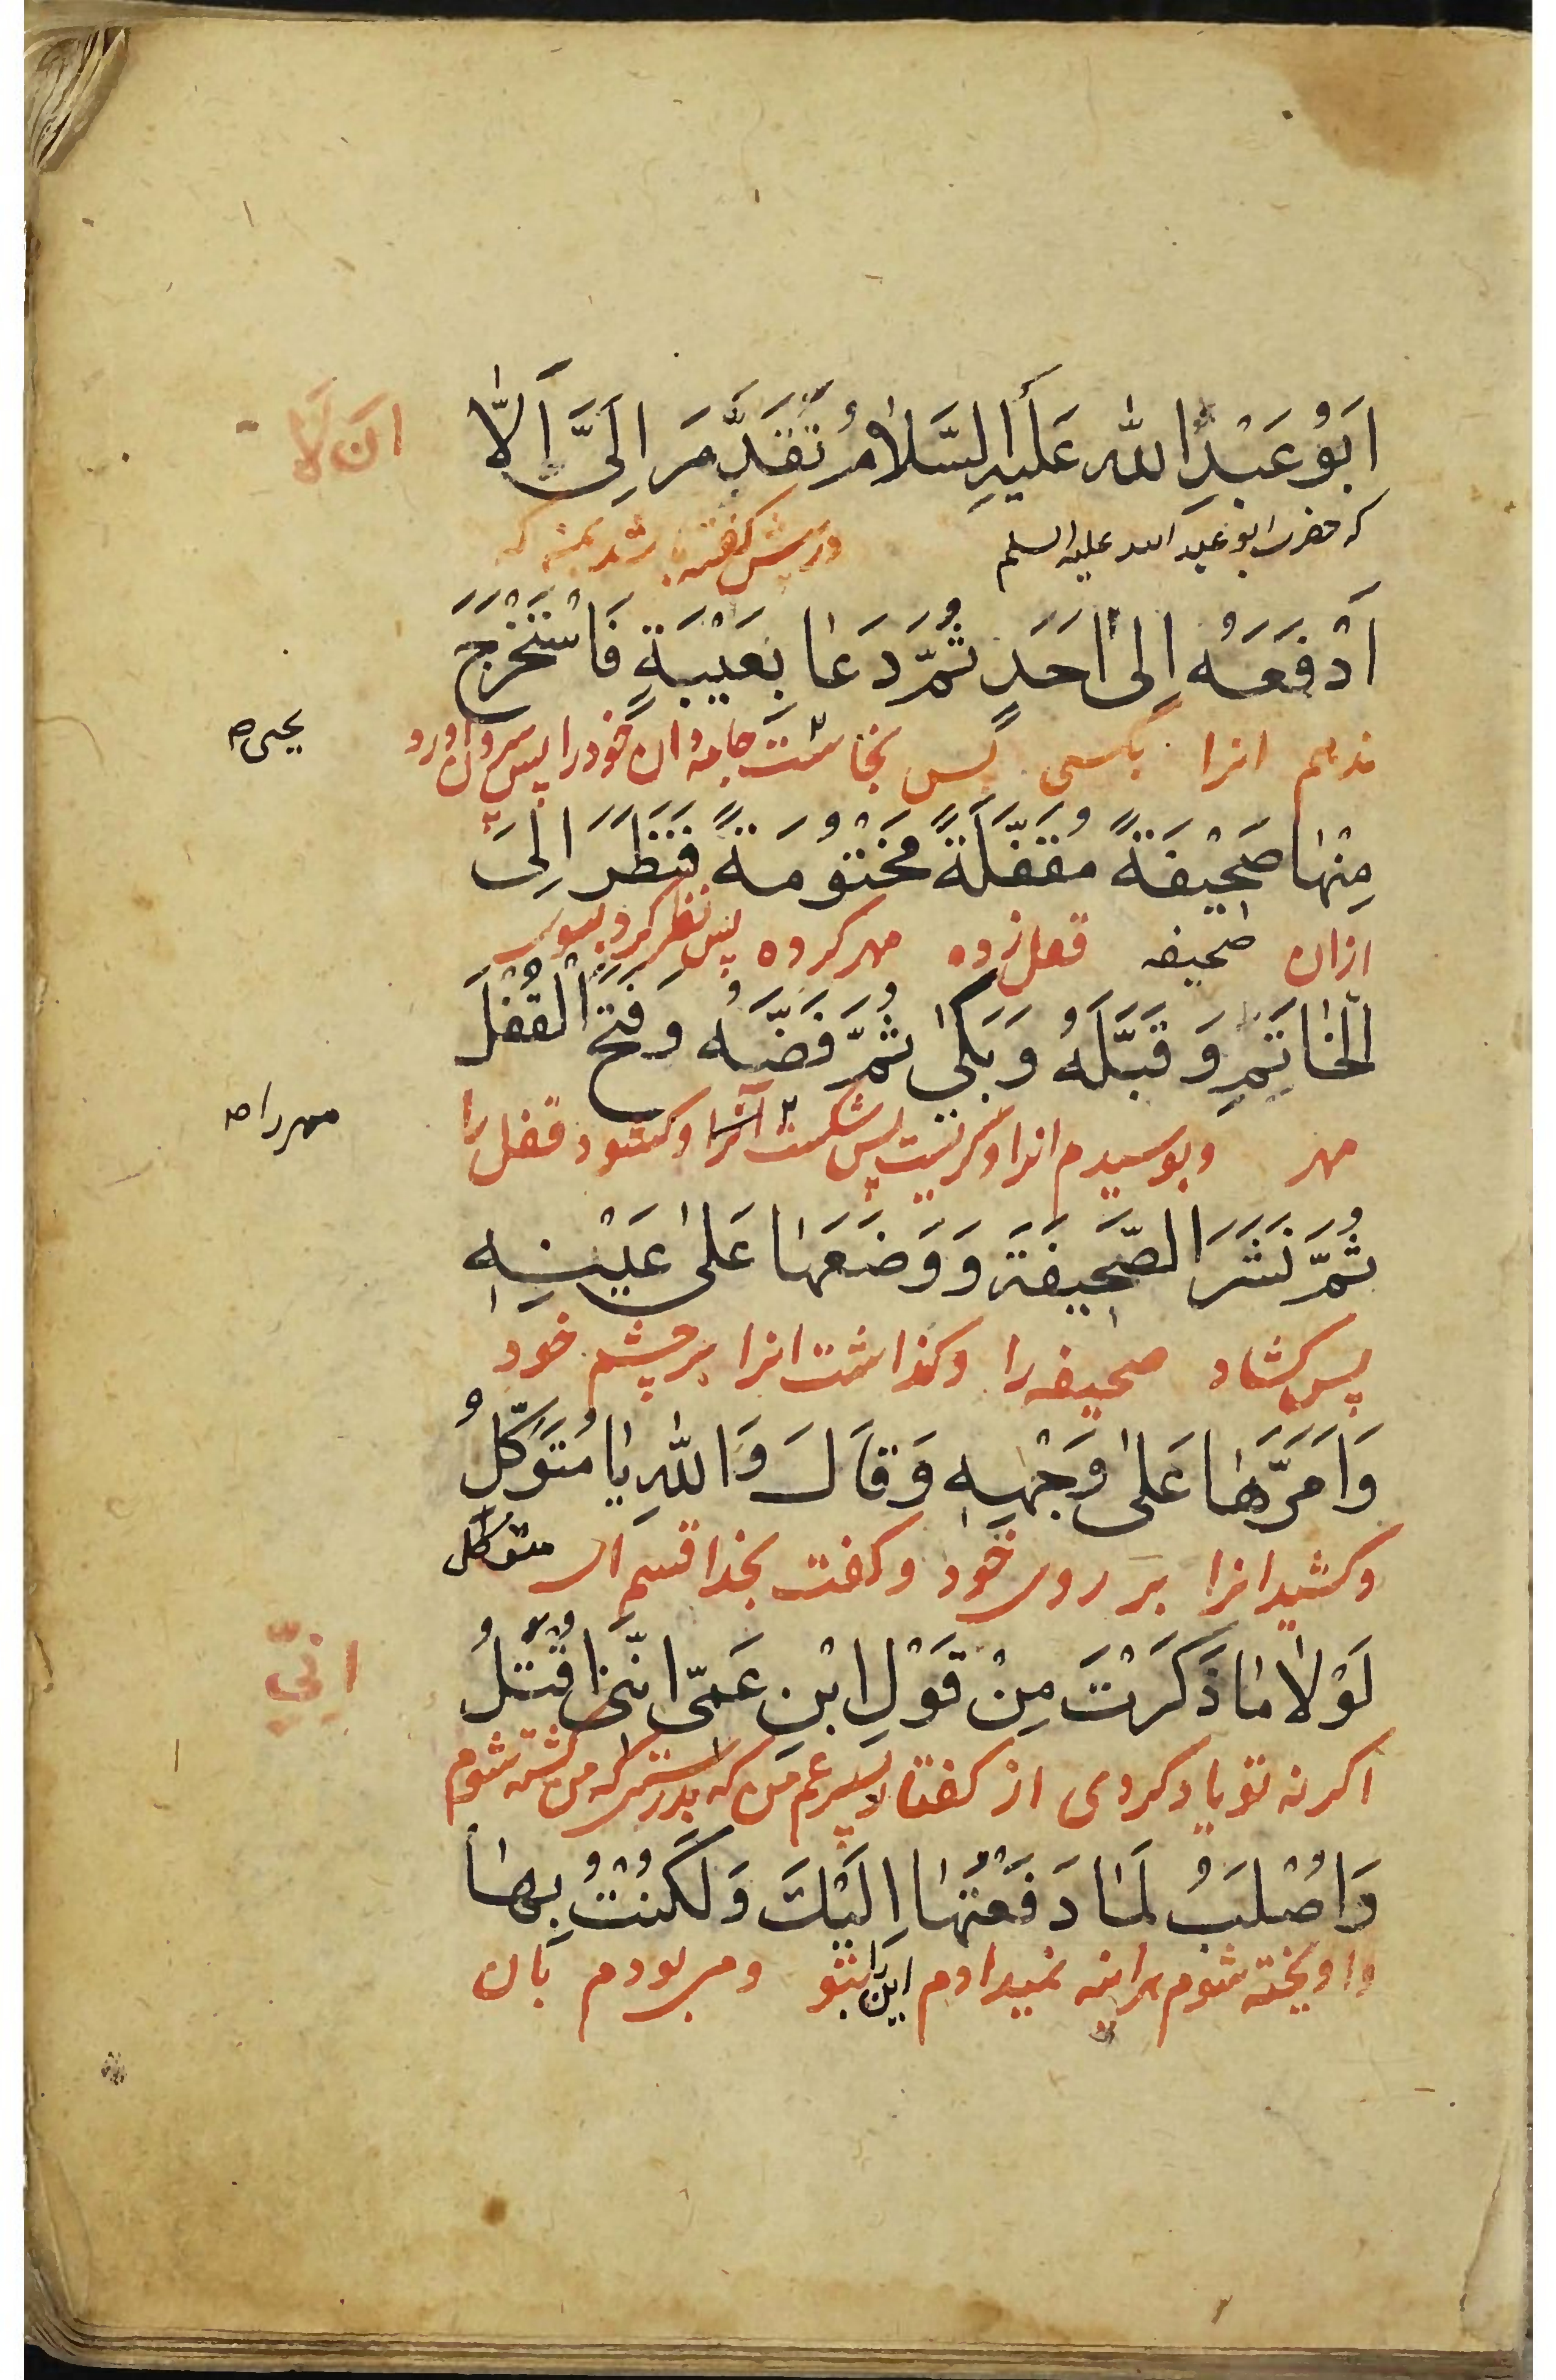 اَبُو عَبْدِ اللّٰهِ عَلَيْهِ السَّلَامُ تَقَدَّمَ اِلَىَّ اَلَّا
اَن لَا
که حضرت ابو عبد الله علیه السلم در پیش گفته
اَدْفَعَهُ اِلىٰ اَحَدٍ ثُمَّ دَعَا بِعَيْبَةٍ فَاسْتَخْرَجَ
ندهم انرا بکسی پس بخاست جامه دان خود را پس بیرون اورد
یحیی صح
مِنْهَا صَحِيْفَةً مُقَفَّلَةً مَخْتُوْمَةً فَنَظَرَ اِلَى
ازان صحیفه قفل زده مهر کرده پس نظر کرد بسوی
الْخَاتَمِ وَقَبَّلَهُ وَبَكىٰ ثُمَّ فَضَّهُ وَفَتَحَ الْقُفْلَ
مهر و بوسیدم انرا و گریست پس شکست آنرا و کشود قفل را
مهر را صح
ثُمَّ نَشَرَ الصَّحِيفَةَ وَوَضَعَهَا عَلىٰ عَيْنِهِ
پس کشاد صحیفه را و کذاشت انرا بر چشم خود
وَاَمَرَّهَا عَلىٰ وَجْهِهِ وَقَالَ وَاللّٰهِ يَا مُتَوَكِّلُ
و کشید انرا بر روی خود و کفت بخدا قسم ای متوکل
لَوْلَا مَا ذَكَرْتَ مِنْ قَوْلِ ابْنِ عَمّى اِنَّنى اُقْتَلُ
اِنّي
اکر نه تو یاد کردی از کفتار پسر عم من که بدرستی که من کشته شوم
وَاُصْلَبُ لَمَا دَفَعْتُهَا اِلَيْكَ وَلَكُنْتُ بِهَا
و اویخته شوم هراینه نمیدادم این را بتو و می بودم بان